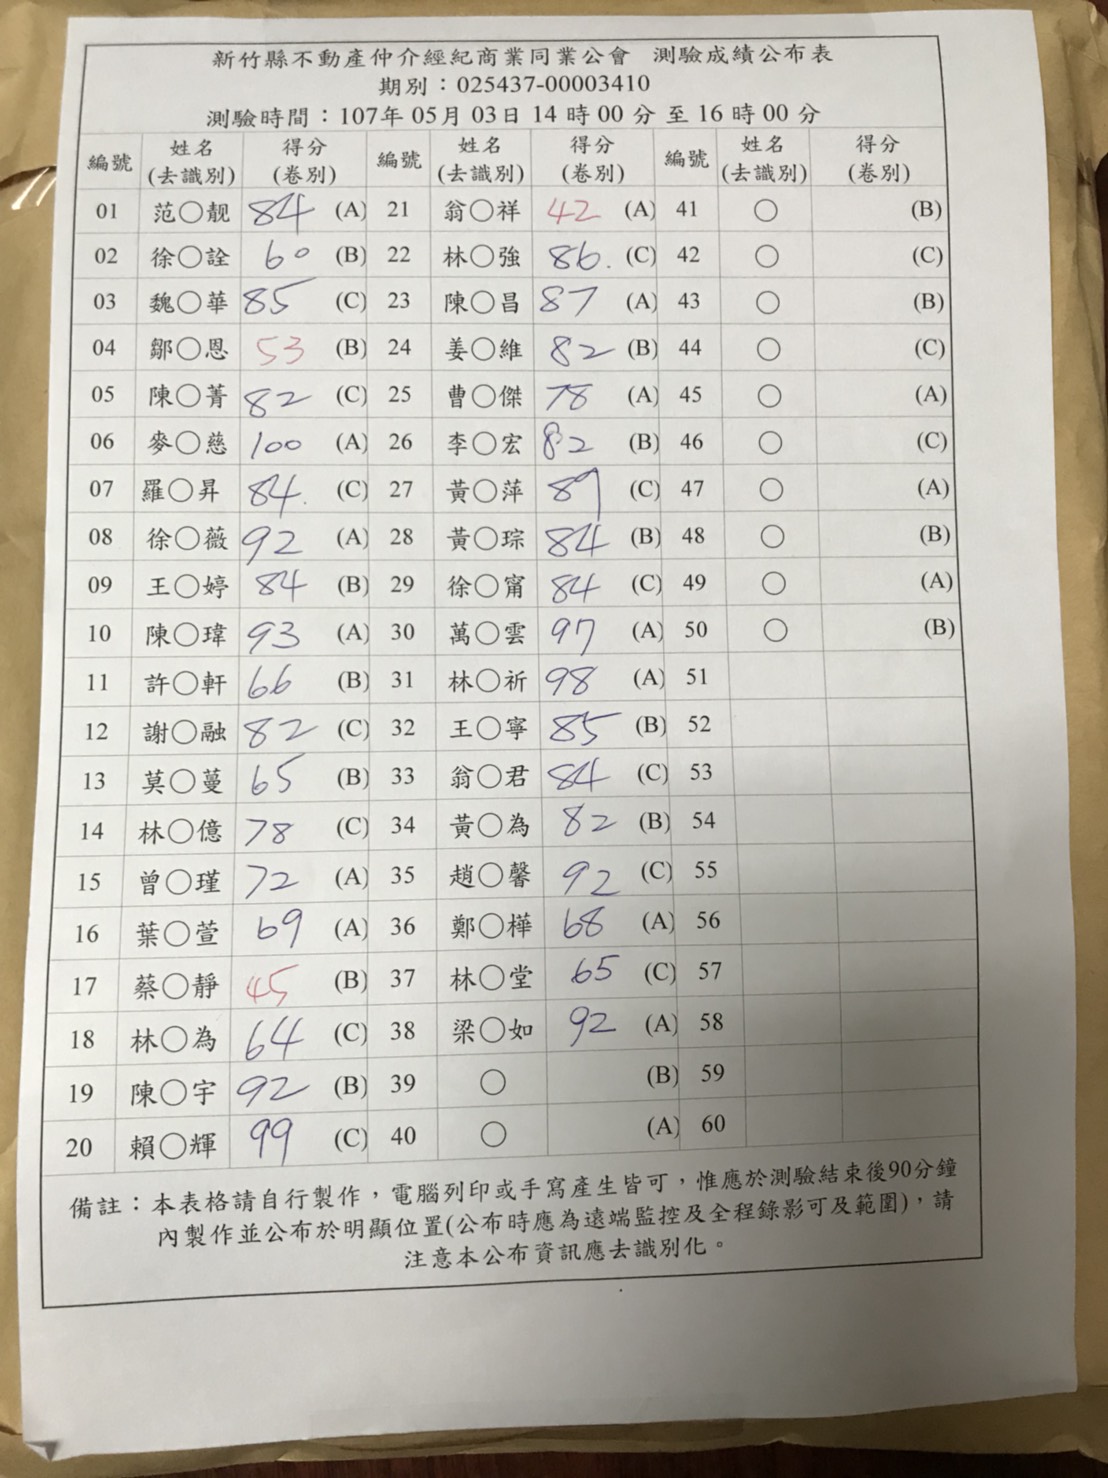 新竹縣不動產仲介經紀商業同業公會 測驗成績公布表
期別：025437-00003410
測驗時間：107年 05月 03日 14 時 00 分 至 16 時 00 分
編號 姓名(去識別) 得分(卷別) 編號 姓名(去識別) 得分(卷別) 編號 姓名(去識別) 得分(卷別)
01 范〇靚 84 (A) 21 翁〇祥 42 (A) 41 〇 (B)
02 徐〇詮 60 (B) 22 林〇強 86. (C) 42 〇 (C)
03 魏〇華 85 (C) 23 陳〇昌 87 (A) 43 〇 (B)
04 鄒〇恩 53 (B) 24 姜〇維 82 (B) 44 〇 (C)
05 陳〇菁 82 (C) 25 曹〇傑 78 (A) 45 〇 (A)
06 麥〇慈 100 (A) 26 李〇宏 82 (B) 46 〇 (C)
07 羅〇昇 84. (C) 27 黃〇萍 89 (C) 47 〇 (A)
08 徐〇薇 92 (A) 28 黃〇琮 84 (B) 48 〇 (B)
09 王〇婷 84 (B) 29 徐〇甯 84 (C) 49 〇 (A)
10 陳〇瑋 93 (A) 30 萬〇雲 97 (A) 50 〇 (B)
11 許〇軒 66 (B) 31 林〇祈 98 (A) 51
12 謝〇融 82 (C) 32 王〇寧 85 (B) 52
13 莫〇蔓 65 (B) 33 翁〇君 84 (C) 53
14 林〇億 78 (C) 34 黃〇為 82 (B) 54
15 曾〇瑾 72 (A) 35 趙〇馨 92 (C) 55
16 葉〇萱 69 (A) 36 鄭〇樺 68 (A) 56
17 蔡〇靜 45 (B) 37 林〇堂 65 (C) 57
18 林〇為 64 (C) 38 梁〇如 92 (A) 58
19 陳〇宇 92 (B) 39 〇 (B) 59
20 賴〇輝 99 (C) 40 〇 (A) 60
備註：本表格請自行製作，電腦列印或手寫產生皆可，惟應於測驗結束後90分鐘
內製作並公布於明顯位置(公布時應為遠端監控及全程錄影可及範圍)，請
注意本公布資訊應去識別化。